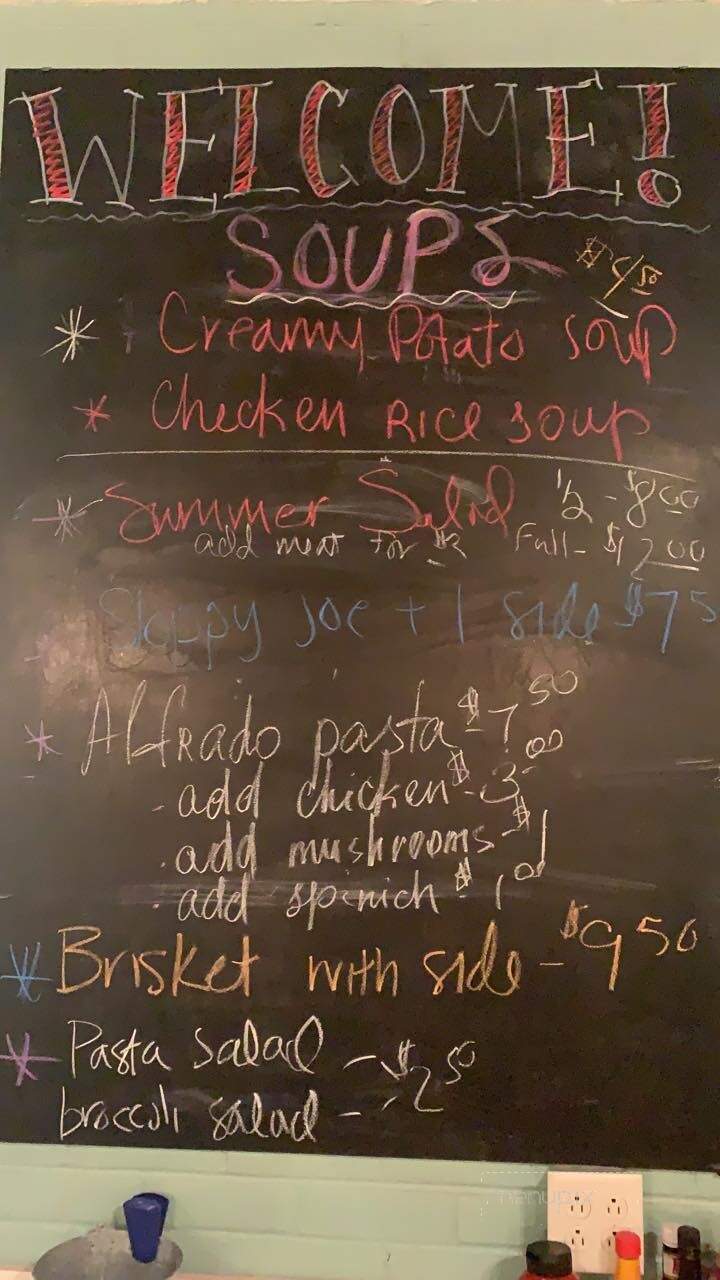 WELCOME!
SOUPS $4.50
* Creamy Potato soup
* Checken RICE soup
* Summer Salad 1/2 - $8.00
add meat for $2 Full - $12.00
Sloppy Joe + 1 side $75
* Alfrado pasta - $7.50
- add chicken - $3.00
- add mushrooms - $1
- add spinich - $1.00
* Brisket with side - $9.50
* Pasta salad - $2.50
broccoli salad -
menupix